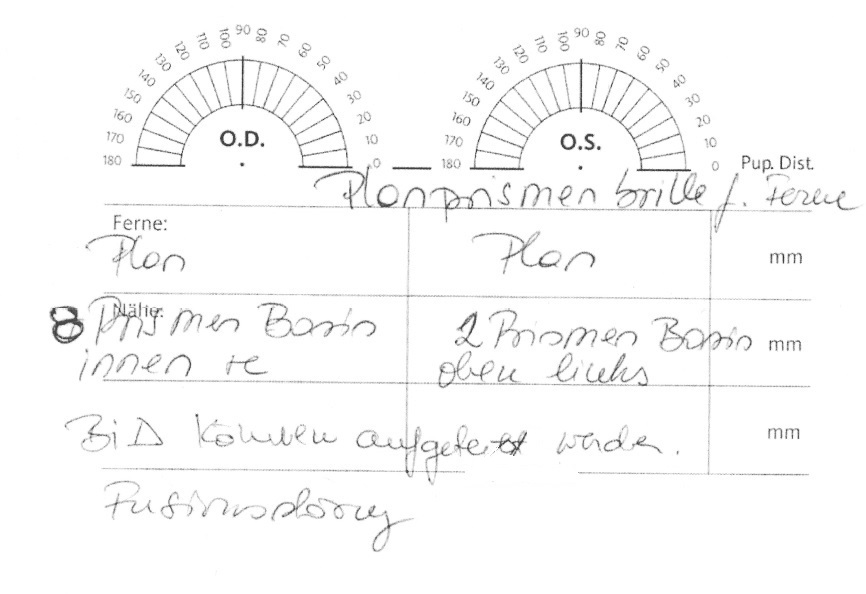 180 170 160 150 140 130 120 110 100 90 80 70 60 50 40 30 20 10 0
180 170 160 150 140 130 120 110 100 90 80 70 60 50 40 30 20 10 0
O.D. O.S.
Pup. Dist.
Planprismen brille f. Ferne
Ferne:
Plan Plan mm
Nähe:
8 Prismen Basis 2 Prismen Basis mm
innen re oben links
BiD können aufgeteilt werden. mm